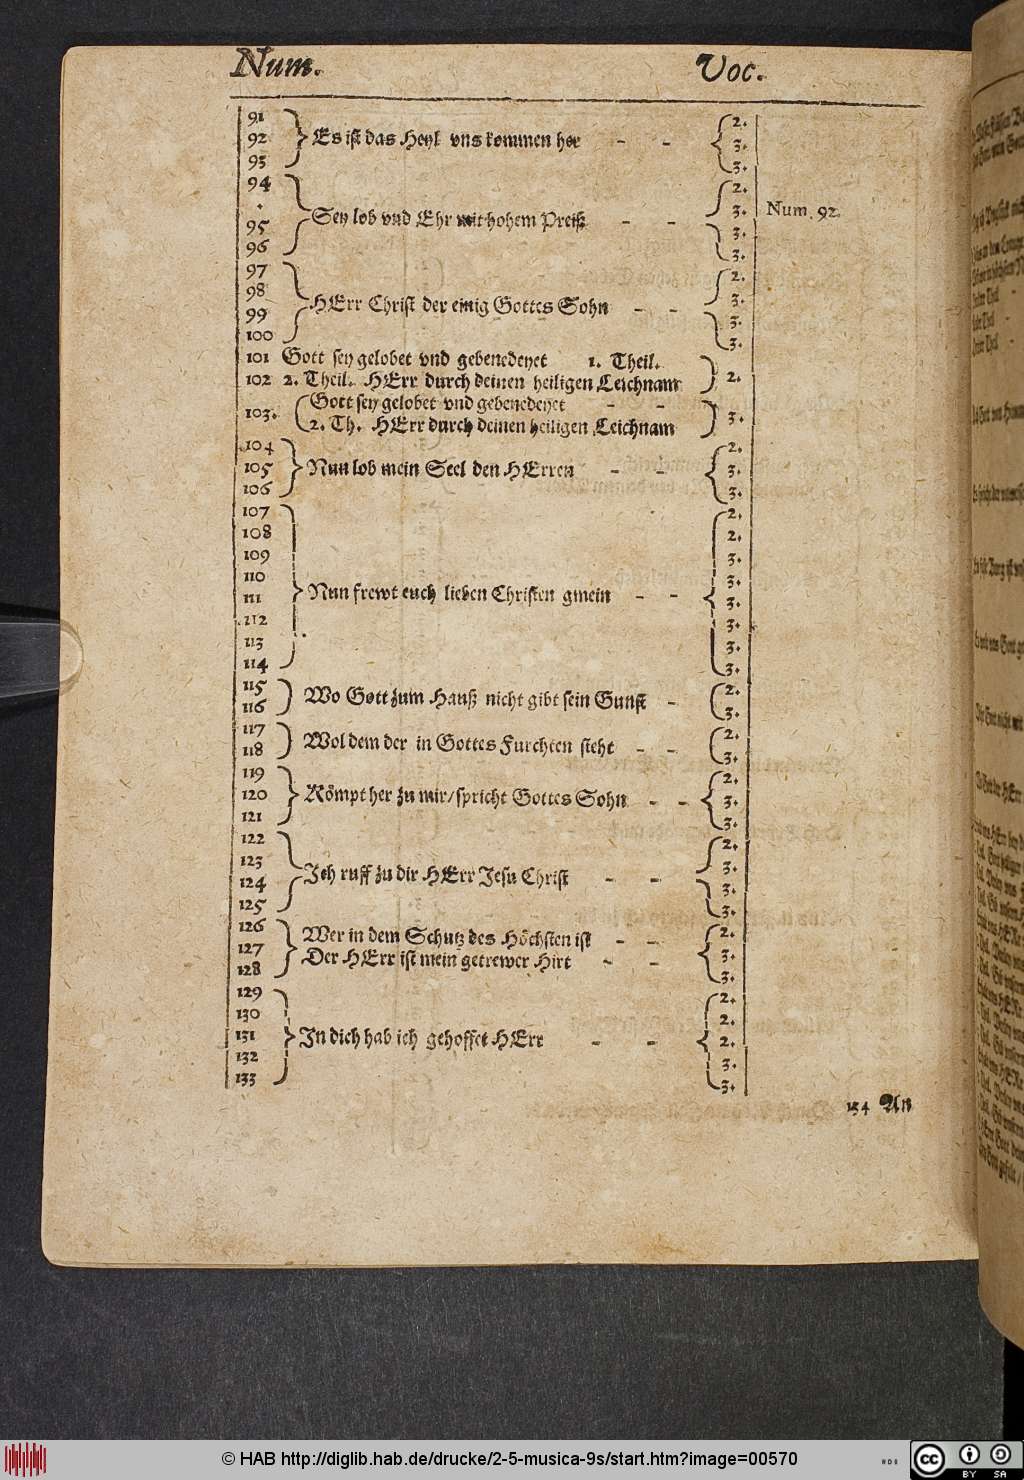 Num. Voc.
91 2.
92 Es ist das Heyl vns kommen her - - 3.
93 3.
94 2.
. 3. Num. 92.
95 Sey lob vnd Ehr mit hohem Preiß - - 3.
96 3.
97 2.
98 3.
HErr Christ der einig Gottes Sohn - -
99 3.
100 3.
101 Gott sey gelobet vnd gebenedeyet 1. Theil.
102 2. Theil. HErr durch deinen heiligen Leichnam 2.
103. Gott sey gelobet vnd gebenedeyet - - 3.
2. Th. HErr durch deinen heiligen Leichnam
104 2.
105 Nun lob mein Seel den HErren - - 3.
106 3.
107 2.
108 2.
109 3.
110 3.
111 Nun frewt euch lieben Christen gmein - - 3.
112 3.
113 3.
114 3.
115 2.
Wo Gott zum Hauß nicht gibt sein Gunst -
116 3.
117 2.
Wol dem der in Gottes Furchten steht - -
118 3.
119 2.
120 Kömpt her zu mir/ spricht Gottes Sohn - - 3.
121 3.
122 2.
123 3.
Ich ruff zu dir HErr Jesu Christ - -
124 3.
125 3.
126 Wer in dem Schutz des Höchsten ist - - 2.
127 Der HErr ist mein getrewer Hirt - - 3.
128 3.
129 2.
130 2.
131 In dich hab ich gehoffet HErr - - 2.
132 3.
133 3.
134 An
© HAB http://diglib.hab.de/drucke/2-5-musica-9s/start.htm?image=00570
cc BY SA